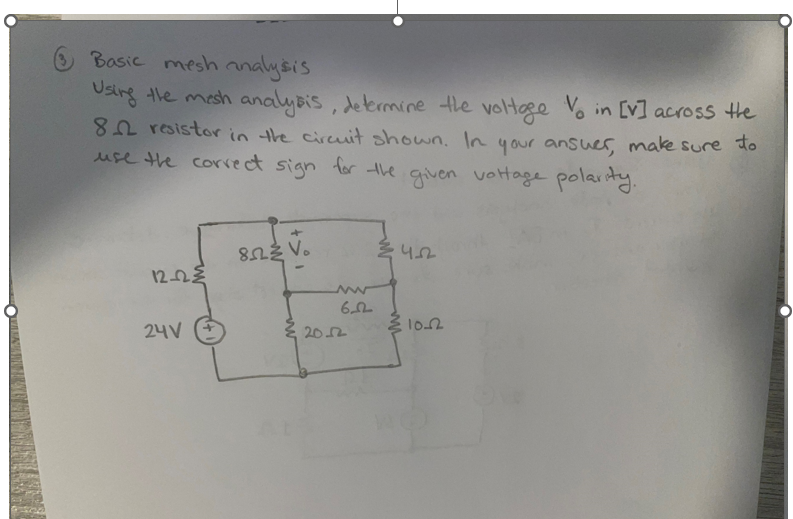 ③ Basic mesh analysis
Using the mesh analysis, determine the voltage Vo in [V] across the
8Ω resistor in the circuit shown. In your answer, make sure to
use the correct sign for the given voltage polarity.
+
8Ω Vo 4Ω
-
12Ω
6Ω
24V + - 20Ω 10Ω